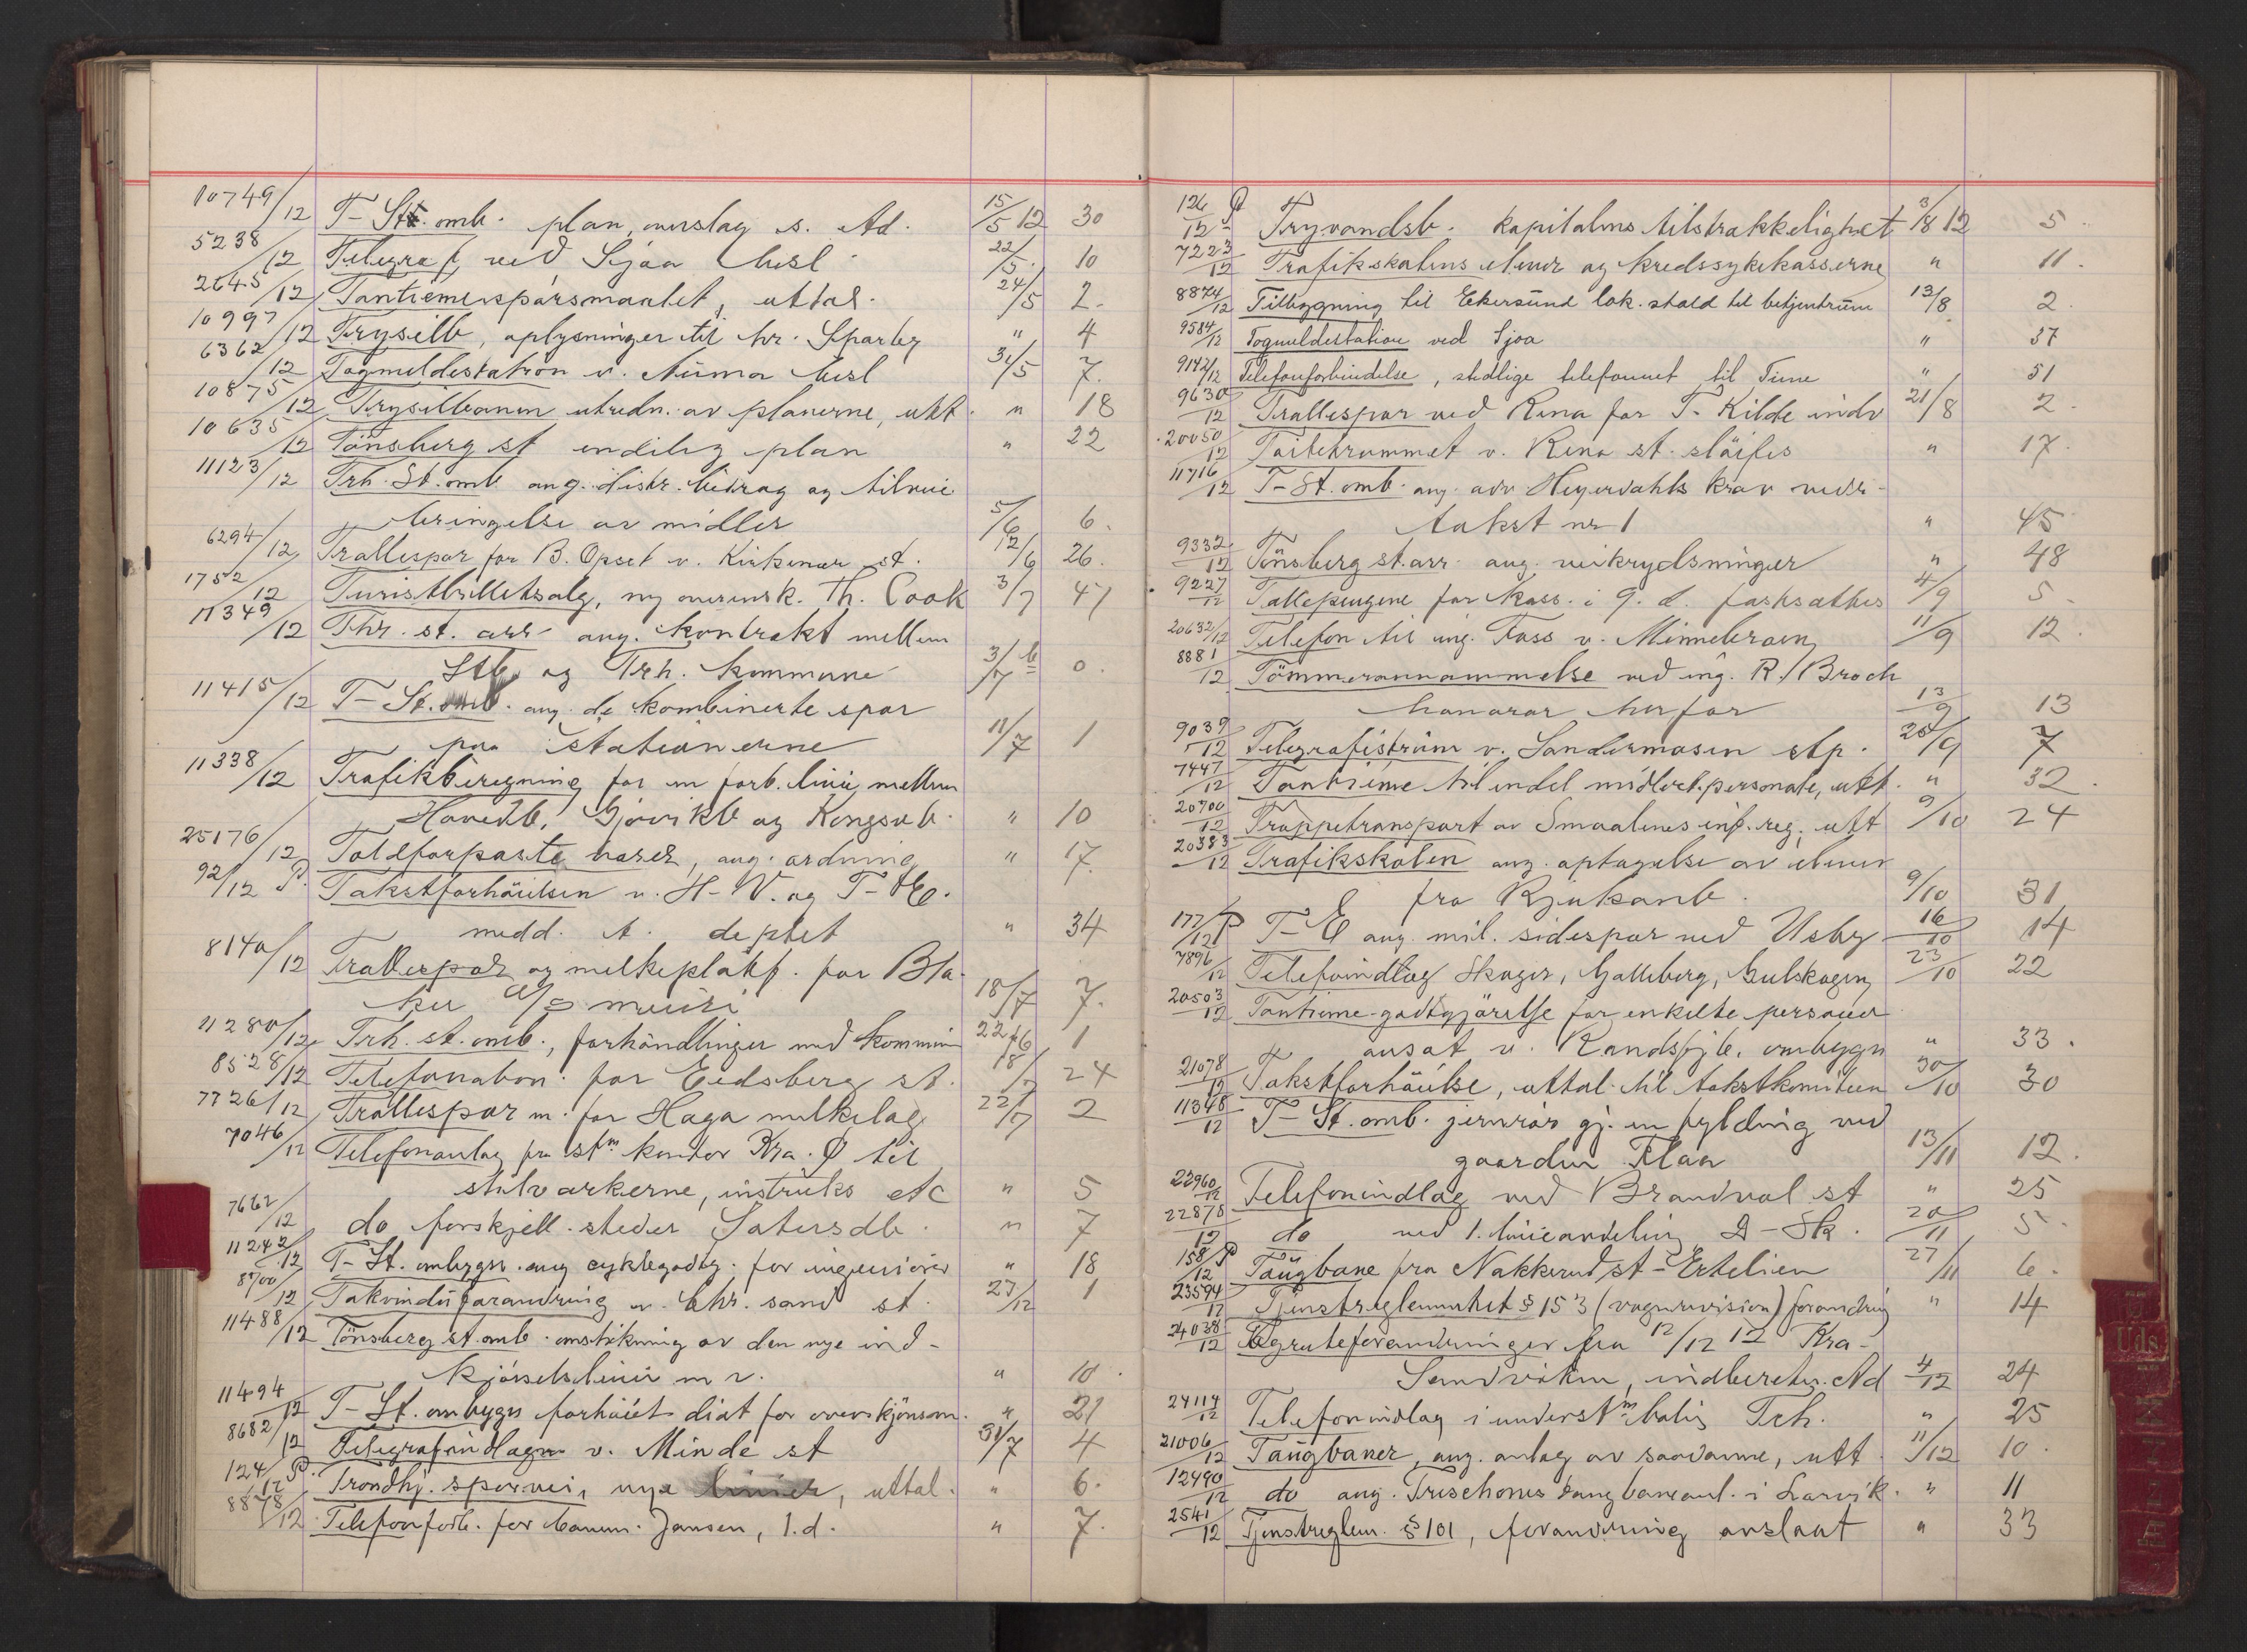 10749/12 T-St. omb. plan, overslag s. Ad. 15/5 12 30
5238/12 Telegraf ved Sjoa hvsl. 22/5 10
2645/12 Tantiemespörsmaalet, uttal. 24/5 2.
10997/12 Trysilb, oplysninger til hr. Sparby " 4
6362/12 Togmeldestation v. hvsl 31/5 7.
10875/12 Trysilbanen utredn. av planerne, utt. " 18
10635/12 Tönsberg st endelig plan " 22
11123/12 Trh. St. omb ang. distr. bidrag og tilveie-
bringelse av midler 5/6 6.
6294/12 Trallespor for B. Opset v. Kirkenær st. 12/6 26.
1752/12 Turistbilletsalg, ny overensk. Th. Cook 3/7 47
11349/12 Thr. st. arr. ang. kontrakt mellem
Stb. og Trh. kommune 3/7 0.
11415/12 T-St. omb. ang. de kombinerte spor
paa stationerne 11/7 1
11338/12 Trafikberegning for en forb. linie mellem
Hovedb, Gjövikb og Kongsvb. " 10
25176/12 Toldforpaste varer, ang. ordning " 17.
92/12 P. Takstforhöielsen v. H-V. og T-
medd. A. deptet " 34
8140/12 Trallespor og melkeplatf. for Bla-
ker meieri 18/7 7.
11280/12 Trh. st. omb., forhandlinger med kommun 22/6 1
8528/12 Telefonabon. for Eidsberg st. 18/7 24
7726/12 Trallespor m. for Haga melkelag 22/7 2
7046/12 Telefonanlæg fra stm kontor Kra. Ø til
stalværkerne, instruks etc " 5
7662/12 do forskjell. steder Sætersdb. " 7
11242/12 T-St. ombygn. ang cyklegodtg. for ingeniörer " 18
8700/12 Takvinduforandring v. Chr. sand st. 23/12 1
11488/12 Tönsberg st. omb. omstikning av den nye ind-
kjörselslinie m v. " 10.
11494/12 T-St. ombygn forhöiet diæt for overskjönsm. " 21
8682/12 Telegrafindlægn v. Minde st 31/7 4
124/12 P. Trondhj. sporvei, nye linier, uttal. " 6.
8878/12 Telefonforb. for banem. Jansen, 1.d. " 7.
126/12 P Tryvandsb. kapitalens tilstrækkelighet 3/8 12 5.
7223/12 Trafikskolens elever og kredssykekasserne " 11.
8874/12 Tilbygning til Ekersund lok. stald til betjentrum 13/8 2.
9584/12 Togmeldestation ved Sjoa " 37
9142/12 Telefonforbindelse, stedlige telefonnet til Tune " 51
9630/12 Trallespor ved Rena for T. Kilde indv 21/8 2.
20050/12 v. Rena st. slöifes " 17.
11716/12 T-St. omb. ang. adv Heyerdahls krav vedr.
takst nr 1 " 45
9332/12 Tönsberg st. arr. ang. veikrydsninger " 48
9227/12 Tællepengene for kass. i 9. d. fastsættes 4/9 5.
20632/12 Telefon til ing. Foss v. Minnebroen 11/9 12.
8881/12 Tömmerannammelse ved ing. R. Broch
honorar herfor 13/9 13
9039/12 Telegrafiström v. Sandermosen stp. 25/9 7
7447/12 Tantieme til endel midlert. personale, utt. " 32.
20700/12 Troppetransport av Smaalenes inf. reg., utt 9/10 24
20383/12 Trafikskolen ang. optagelse av elever
fra Rjukanb. 9/10 31
177/12 P T-E ang. mil. sidespor ved Usby 16/10 14
7896/12 Telefonindlæg Skoger, Galleberg, Gulskogen 23/10 22
20503/12 Tantieme-godtgjörelse for enkelte personer
ansat v. Randsfjb. ombygn " 33.
21078/12 Takstforhöielse, uttal. til takstkomiteen 30/10 30
11348/12 T-St. omb. jernrör gj. en fylding ved
gaarden Flaa 13/11 12.
22960/12 Telefonindlæg ved Brandval st " 25
22878/12 do ved 1. linieavdeling D-Sk. 20/11 5.
158/12 P Taugbane fra Nakkerud st-Ertelien 27/11 6.
23594/12 Tjenstreglementet § 153 (vognrevision) forandring " 14
24038/12 Togruteforandringer fra 12/12 12 Kra-
Sandviken, indberetn. Ad 4/12 24
24114/12 Telefonindlæg i understm bolig Trh. " 25
21006/12 Taugbaner, ang. anlæg av saadanne, utt. 11/12 10.
12490/12 do ang. Treschows taugbaneanl. i Larvik. " 11
2541/12 Tjenstreglem. § 101, forandring avslaat " 33
Uds